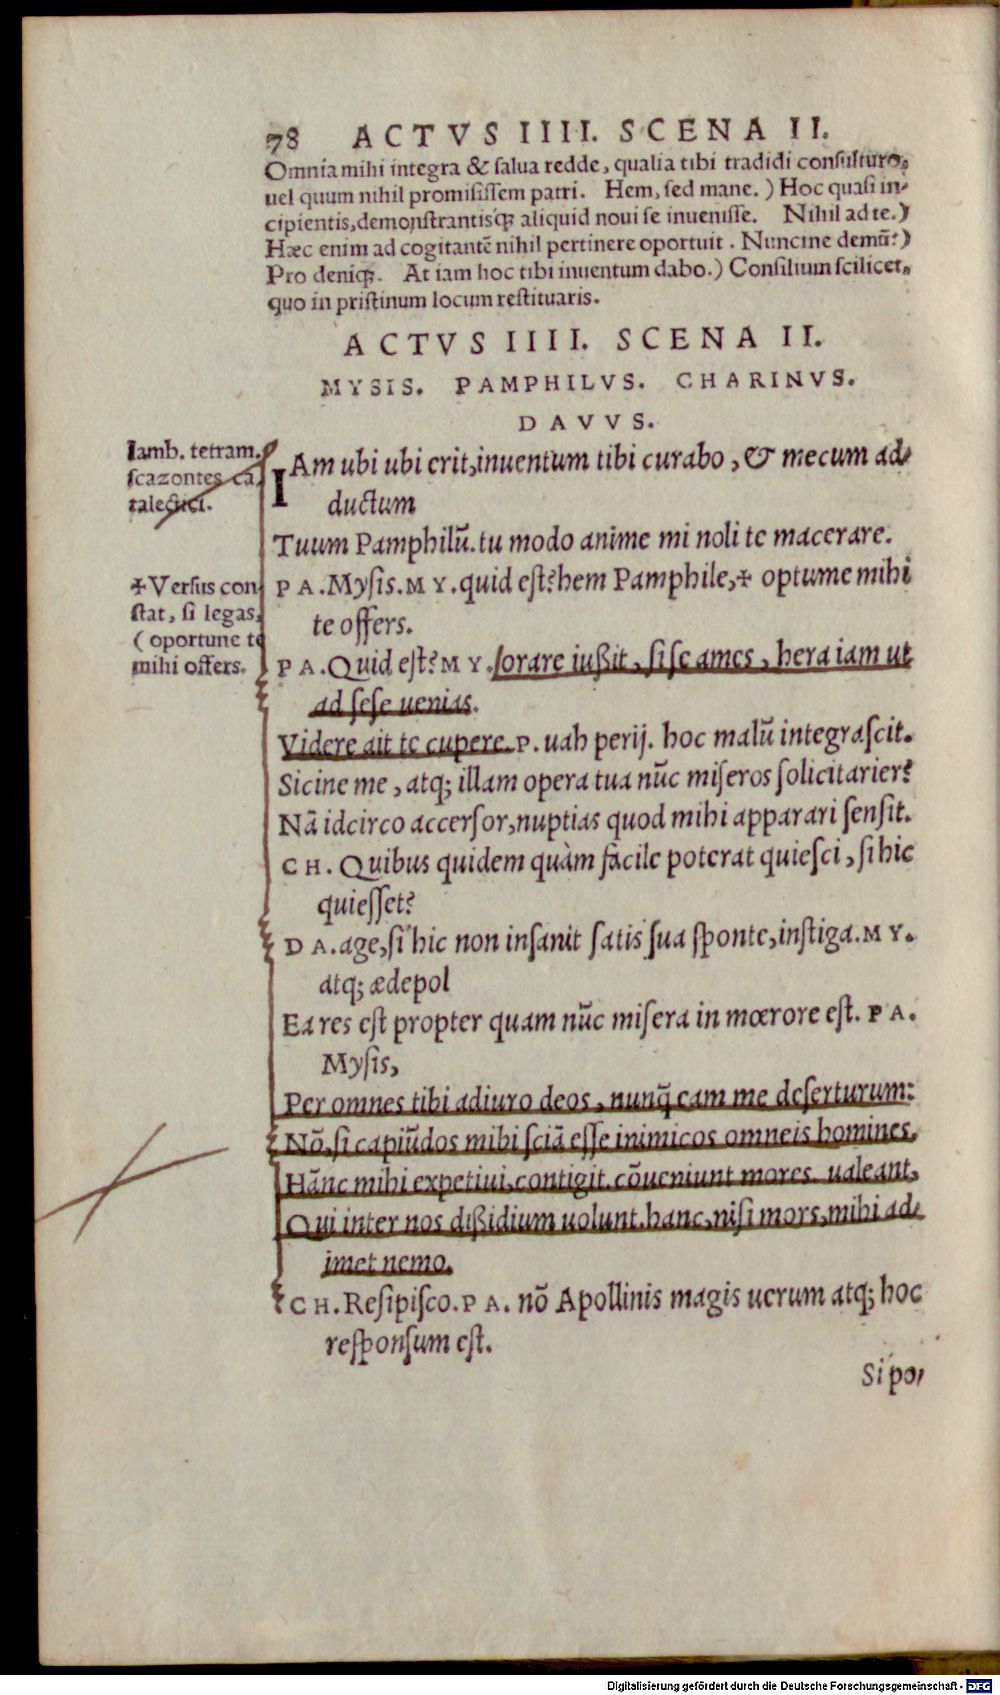 78 ACTVS IIII. SCENA II.
Omnia mihi integra & salua redde, qualia tibi tradidi consulturo,
uel quum nihil promisissem patri. Hem, sed mane.) Hoc quasi in-
cipientis, demonstrantisq; aliquid noui se inuenisse. Nihil ad te.)
Hæc enim ad cogitantē nihil pertinere oportuit. Nuncine demū?)
Pro deniq;. At iam hoc tibi inuentum dabo.) Consilium scilicet,
quo in pristinum locum restituaris.
ACTVS IIII. SCENA II.
MYSIS. PAMPHILVS. CHARINVS.
DAVVS.
Iamb. tetram.
scazontes ca
talectici.
IAm ubi ubi erit, inuentum tibi curabo, & mecum ad-
ductum
Tuum Pamphilū. tu modo anime mi noli te macerare.
✢ Versus con
stat, si legas,
( oportune te
mihi offers.
PA. Mysis. MY. quid est? hem Pamphile, ✢ optume mihi
te offers.
PA. Quid est? MY. lorare iußit, si se ames, hera iam ut
ad sese uenias.
Videre ait te cupere. P. uah perij. hoc malū integrascit.
Sicine me, atq; illam opera tua nūc miseros solicitarier?
Nā idcirco accersor, nuptias quod mihi apparari sensit.
CH. Quibus quidem quàm facile poterat quiesci, si hic
quiesset?
DA. age, si hic non insanit satis sua sponte, instiga. MY.
atq; ædepol
Ea res est propter quam nūc misera in mœrore est. PA.
Mysis,
Per omnes tibi adiuro deos, nunq̄ eam me deserturum:
Nō, si capiūdos mihi sciā esse inimicos omneis homines.
Hāc mihi expetiui, contigit. cōueniunt mores. ualeant,
Qui inter nos dißidium uolunt. hanc, nisi mors, mihi ad-
imet nemo.
CH. Resipisco. PA. nō Apollinis magis uerum atq; hoc
responsum est.
Si po-
Digitalisierung gefördert durch die Deutsche Forschungsgemeinschaft - DFG